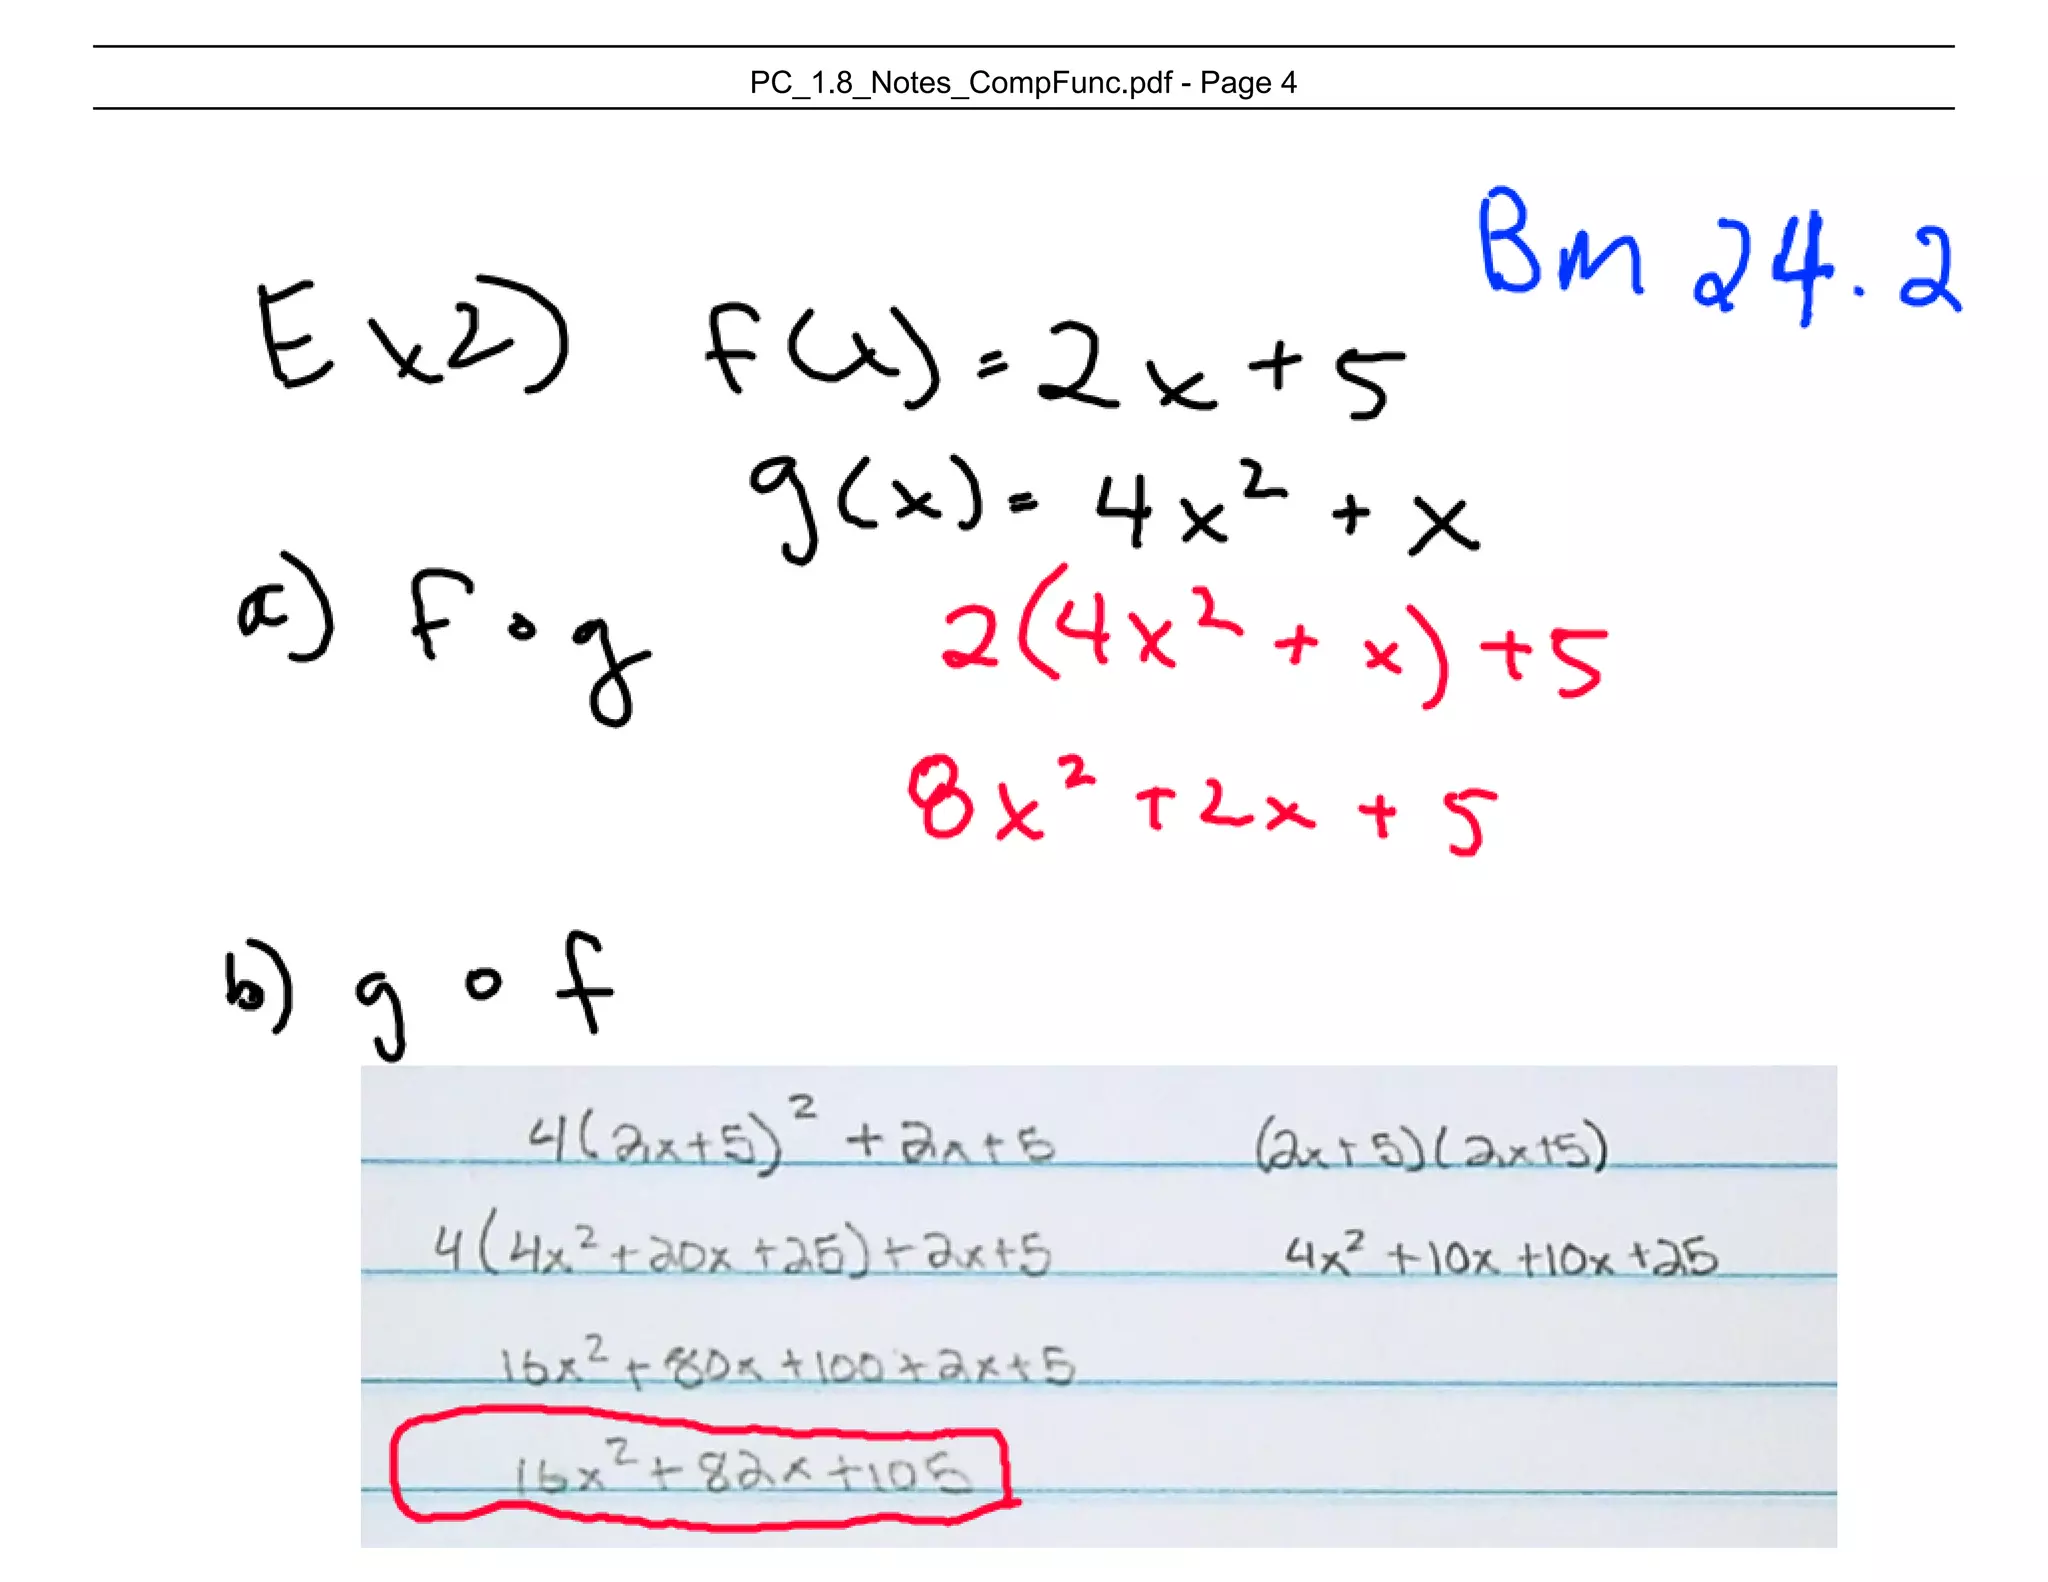 PC_1.8_Notes_CompFunc.pdf - Page 4
Bm 24.2
Ex2) f(x) = 2x + 5
g(x) = 4x² + x
a) f ∘ g 2(4x² + x) + 5
8x² + 2x + 5
b) g ∘ f
4(2x+5)² + 2x+5 (2x+5)(2x+5)
4(4x²+20x+25)+2x+5 4x²+10x+10x+25
16x²+80x+100+2x+5
16x²+82x+105